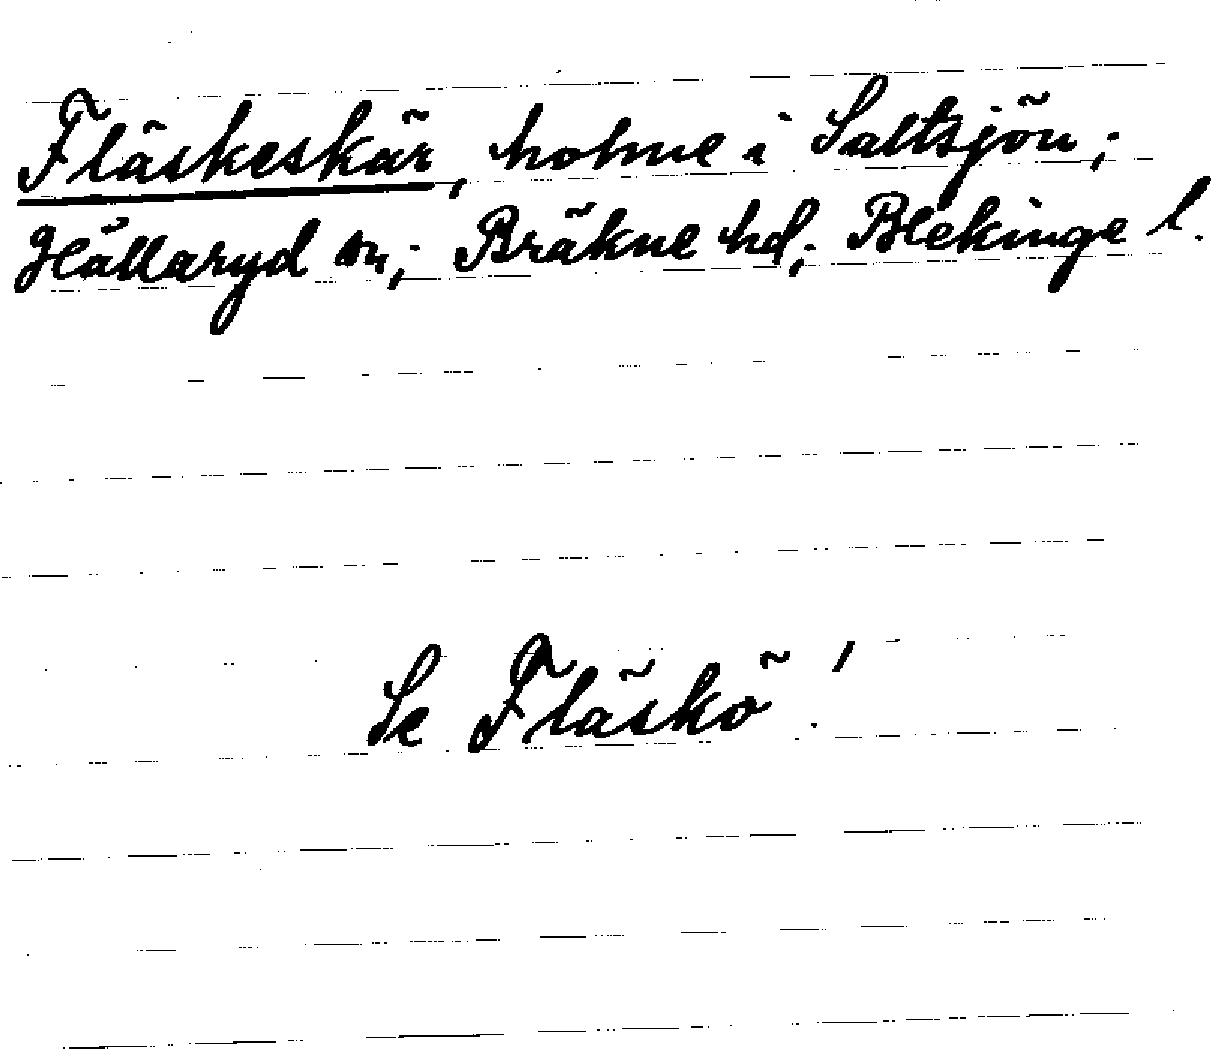 Fläskeskär, holme i Saltsjön;
Hällaryd sn; Bräkne hd; Blekinge l.
Se Fläskö!